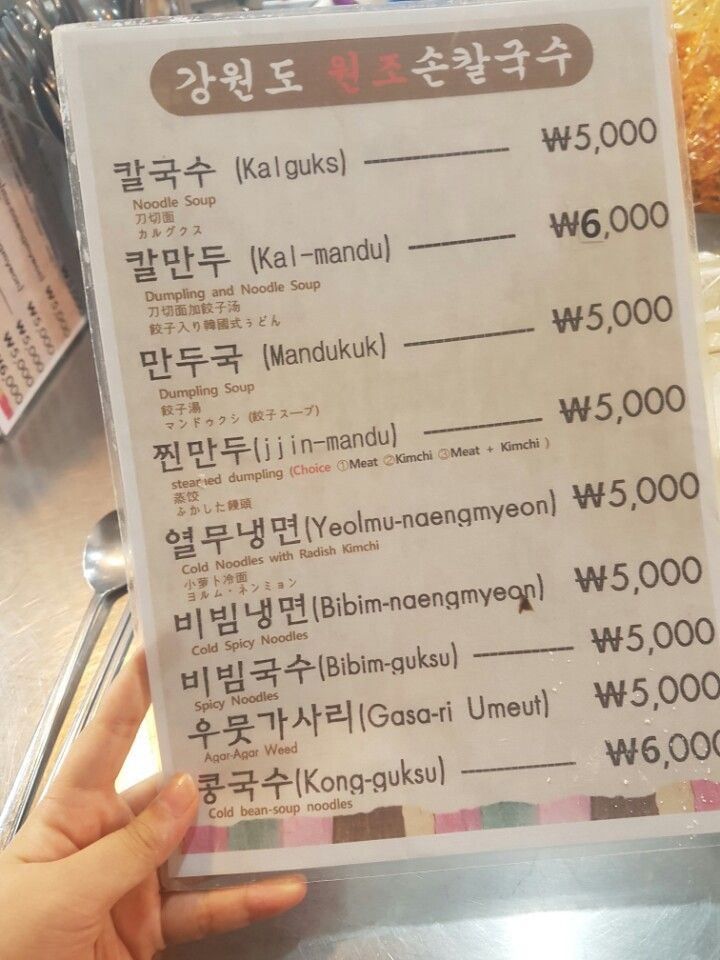 강원도 원조손칼국수
칼국수 (Kalguks) ₩5,000
Noodle Soup
刀切面
カルグクス
칼만두 (Kal-mandu) ₩6,000
Dumpling and Noodle Soup
刀切面加餃子汤
餃子入り韓國式うどん
만두국 (Mandukuk) ₩5,000
Dumpling Soup
餃子湯
マンドゥクシ (餃子スープ)
찐만두(jjin-mandu) ₩5,000
steamed dumpling (Choice ①Meat ②Kimchi ③Meat + Kimchi )
蒸饺
ふかした饅頭
열무냉면(Yeolmu-naengmyeon) ₩5,000
Cold Noodles with Radish Kimchi
小萝卜冷面
ヨルム・ネンミョン
비빔냉면(Bibim-naengmyeon) ₩5,000
Cold Spicy Noodles
비빔국수(Bibim-guksu) ₩5,000
Spicy Noodles
우뭇가사리(Gasa-ri Umeut) ₩5,000
Agar-Agar Weed
콩국수(Kong-guksu) ₩6,000
Cold bean-soup noodles
₩5,000
₩5,000
₩5,000
₩6,000